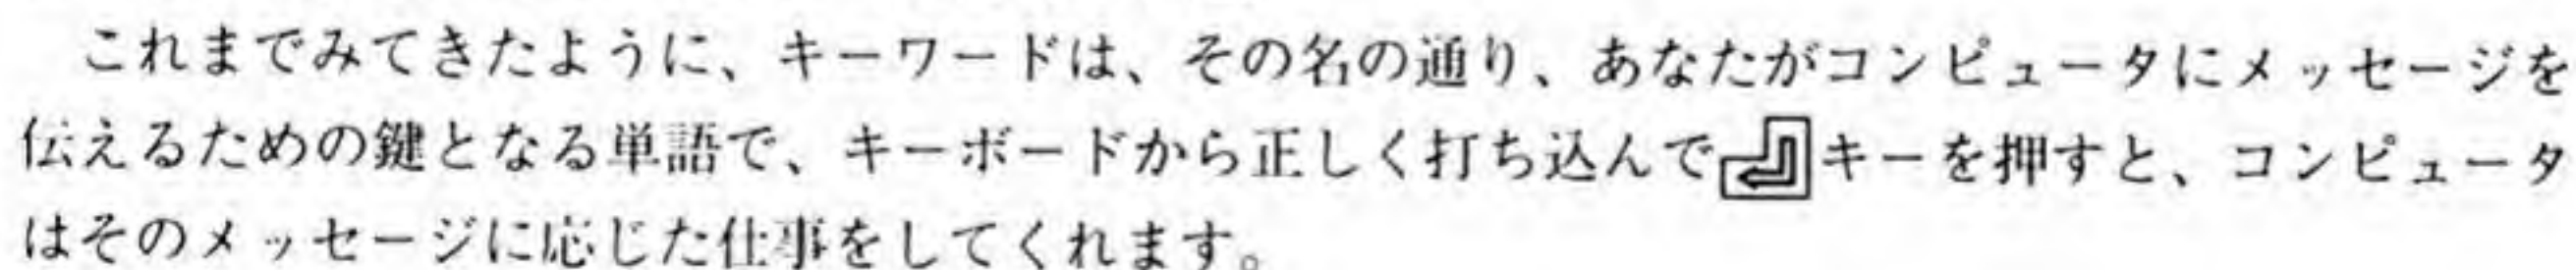 これまでみてきたように、キーワードは、その名の通り、あなたがコンピュータにメッセージを
伝えるための鍵となる単語で、キーボードから正しく打ち込んで↵キーを押すと、コンピュータ
はそのメッセージに応じた仕事をしてくれます。